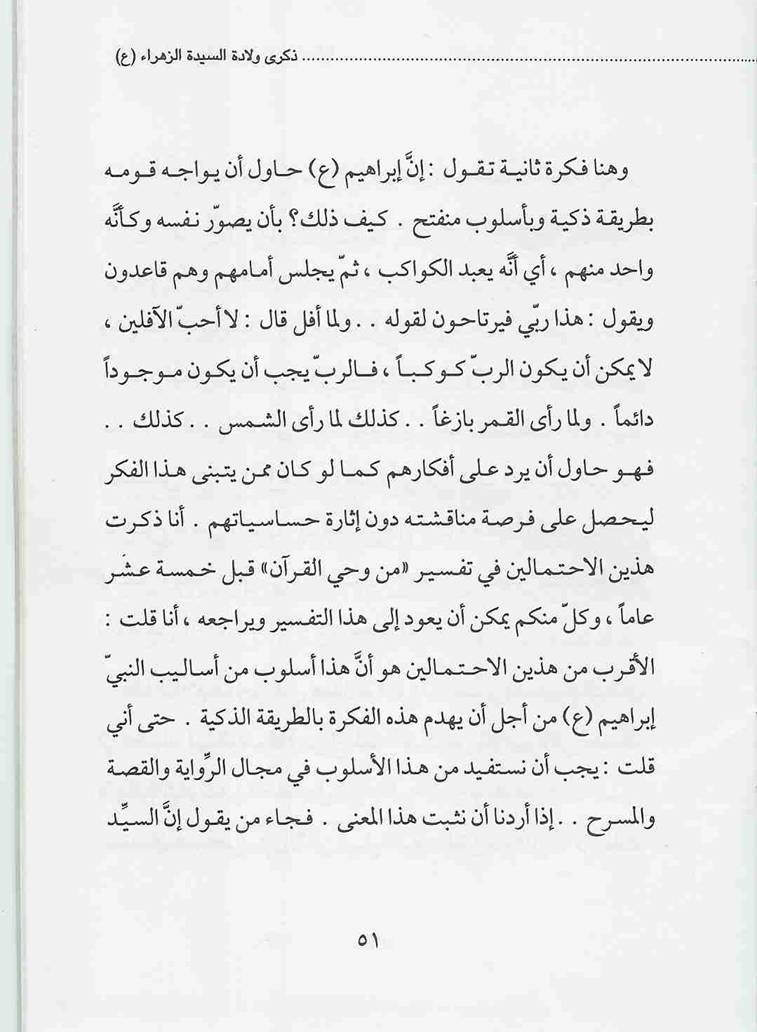 ذكرى ولادة السيدة الزهراء (ع) ......................................................................
وهنا فكرة ثانية تقول : إنَّ إبراهيم (ع) حاول أن يواجه قومه
بطريقة ذكية وبأسلوب منفتح . كيف ذلك؟ بأن يصوّر نفسه وكأنَّه
واحد منهم ، أي أنَّه يعبد الكواكب ، ثمّ يجلس أمامهم وهم قاعدون
ويقول : هذا ربّي فيرتاحون لقوله . . ولما أفل قال : لا أحبّ الآفلين ،
لا يمكن أن يكون الربّ كوكباً ، فالربّ يجب أن يكون موجوداً
دائماً . ولما رأى القمر بازغاً . . كذلك لما رأى الشمس . . كذلك . .
فهو حاول أن يرد على أفكارهم كما لو كان ممن يتبنى هذا الفكر
ليحصل على فرصة مناقشته دون إثارة حساسياتهم . أنا ذكرت
هذين الاحتمالين في تفسير «من وحي القرآن» قبل خمسة عشر
عاماً ، وكلّ منكم يمكن أن يعود إلى هذا التفسير ويراجعه ، أنا قلت :
الأقرب من هذين الاحتمالين هو أنَّ هذا أسلوب من أساليب النبيّ
إبراهيم (ع) من أجل أن يهدم هذه الفكرة بالطريقة الذكية . حتى أني
قلت : يجب أن نستفيد من هذا الأسلوب في مجال الرِّواية والقصة
والمسرح . . إذا أردنا أن نثبت هذا المعنى . فجاء من يقول إنَّ السيِّد
٥١